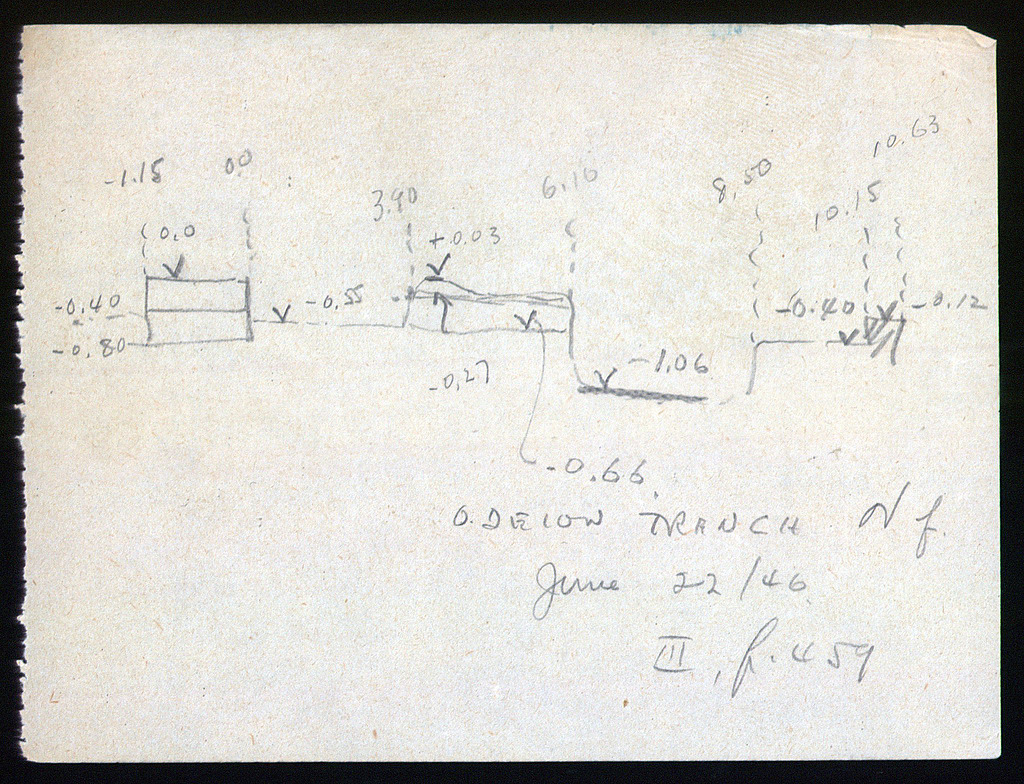 -1.15 0.0 3.90 6.10 8.50 10.15 10.63
0.0 +0.03
-0.40 -0.55 -0.40 -0.12
-0.80
-0.27 -1.06
-0.66
ODEION TRANCH N f.
June 22/46
III, p. 459